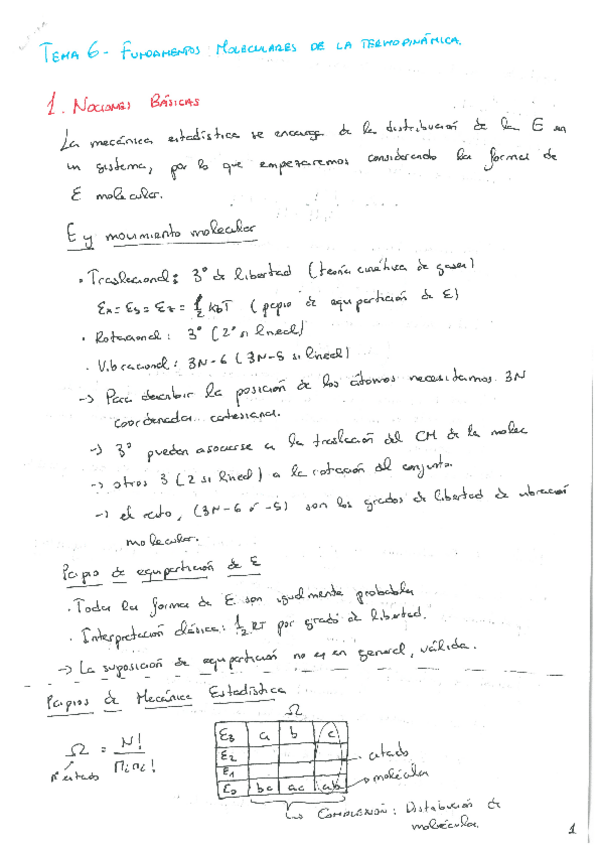 TEMA 6 - FUNDAMENTOS MOLECULARES DE LA TERMODINÁMICA.
1. NOCIONES BÁSICAS
La mecánica estadística se encarga de la distribución de la E en
un sistema, por lo que empezaremos considerando las formas de
E molecular.
E y movimiento molecular
• Traslacional: 3º de libertad (teoría cinética de gases)
Ex = Ey = Ez = 1/2 kbT (ppio de equipartición de E)
• Rotacional: 3º (2º si lineal)
• Vibracional: 3N-6 (3N-5 si lineal)
-> Para describir la posición de los átomos necesitamos 3N
coordenadas cartesianas.
-> 3º pueden asociarse a la traslación del CM de la molec
-> otros 3 (2 si lineal) a la rotación del conjunto.
-> el resto, (3N-6 ó -5) son los grados de libertad de vibración
molecular.
Ppio de equipartición de E
• Todas las formas de E son igualmente probables
• Interpretación clásica: 1/2 RT por grado de libertad.
-> La suposición de equipartición no es en general, válida.
Ppios de Mecánica Estadística
Ω
Ω = N! / Πi ni!
nº estados
E3 a b c
E2
E1
E0 bc ac ab
estado
moléculas
COMPLEXIÓN: Distribución de
moléculas.
1